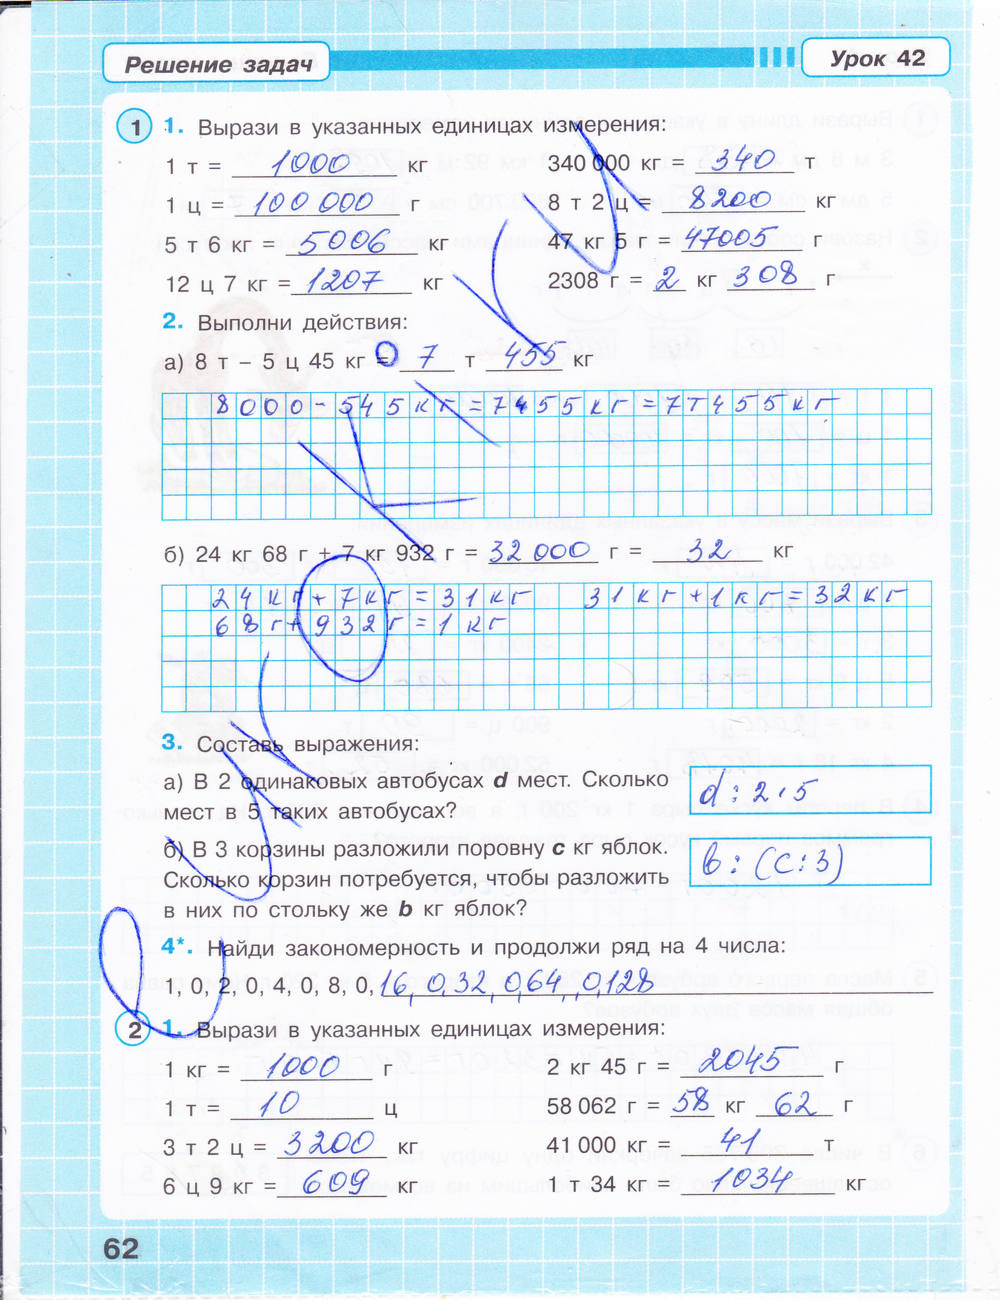 Решение задач
Урок 42
1 1. Вырази в указанных единицах измерения:
1 т = 1000 кг 340 000 кг = 340 т
1 ц = 100 000 г 8 т 2 ц = 8200 кг
5 т 6 кг = 5006 кг 47 кг 5 г = 47005 г
12 ц 7 кг = 1207 кг 2308 г = 2 кг 308 г
2. Выполни действия:
а) 8 т – 5 ц 45 кг = 7 т 455 кг
8000-545кг=7455кг=7т455кг
б) 24 кг 68 г + 7 кг 932 г = 32 000 г = 32 кг
24кг+7кг=31кг 31кг+1кг=32кг
68г+932г=1кг
3. Составь выражения:
а) В 2 одинаковых автобусах d мест. Сколько
мест в 5 таких автобусах?
d:2·5
б) В 3 корзины разложили поровну с кг яблок.
Сколько корзин потребуется, чтобы разложить
в них по стольку же b кг яблок?
b:(c:3)
4*. Найди закономерность и продолжи ряд на 4 числа:
1, 0, 2, 0, 4, 0, 8, 0, 16, 0,32, 0,64, 0,128
2 1. Вырази в указанных единицах измерения:
1 кг = 1000 г 2 кг 45 г = 2045 г
1 т = 10 ц 58 062 г = 58 кг 62 г
3 т 2 ц = 3200 кг 41 000 кг = 41 т
6 ц 9 кг = 609 кг 1 т 34 кг = 1034 кг
62